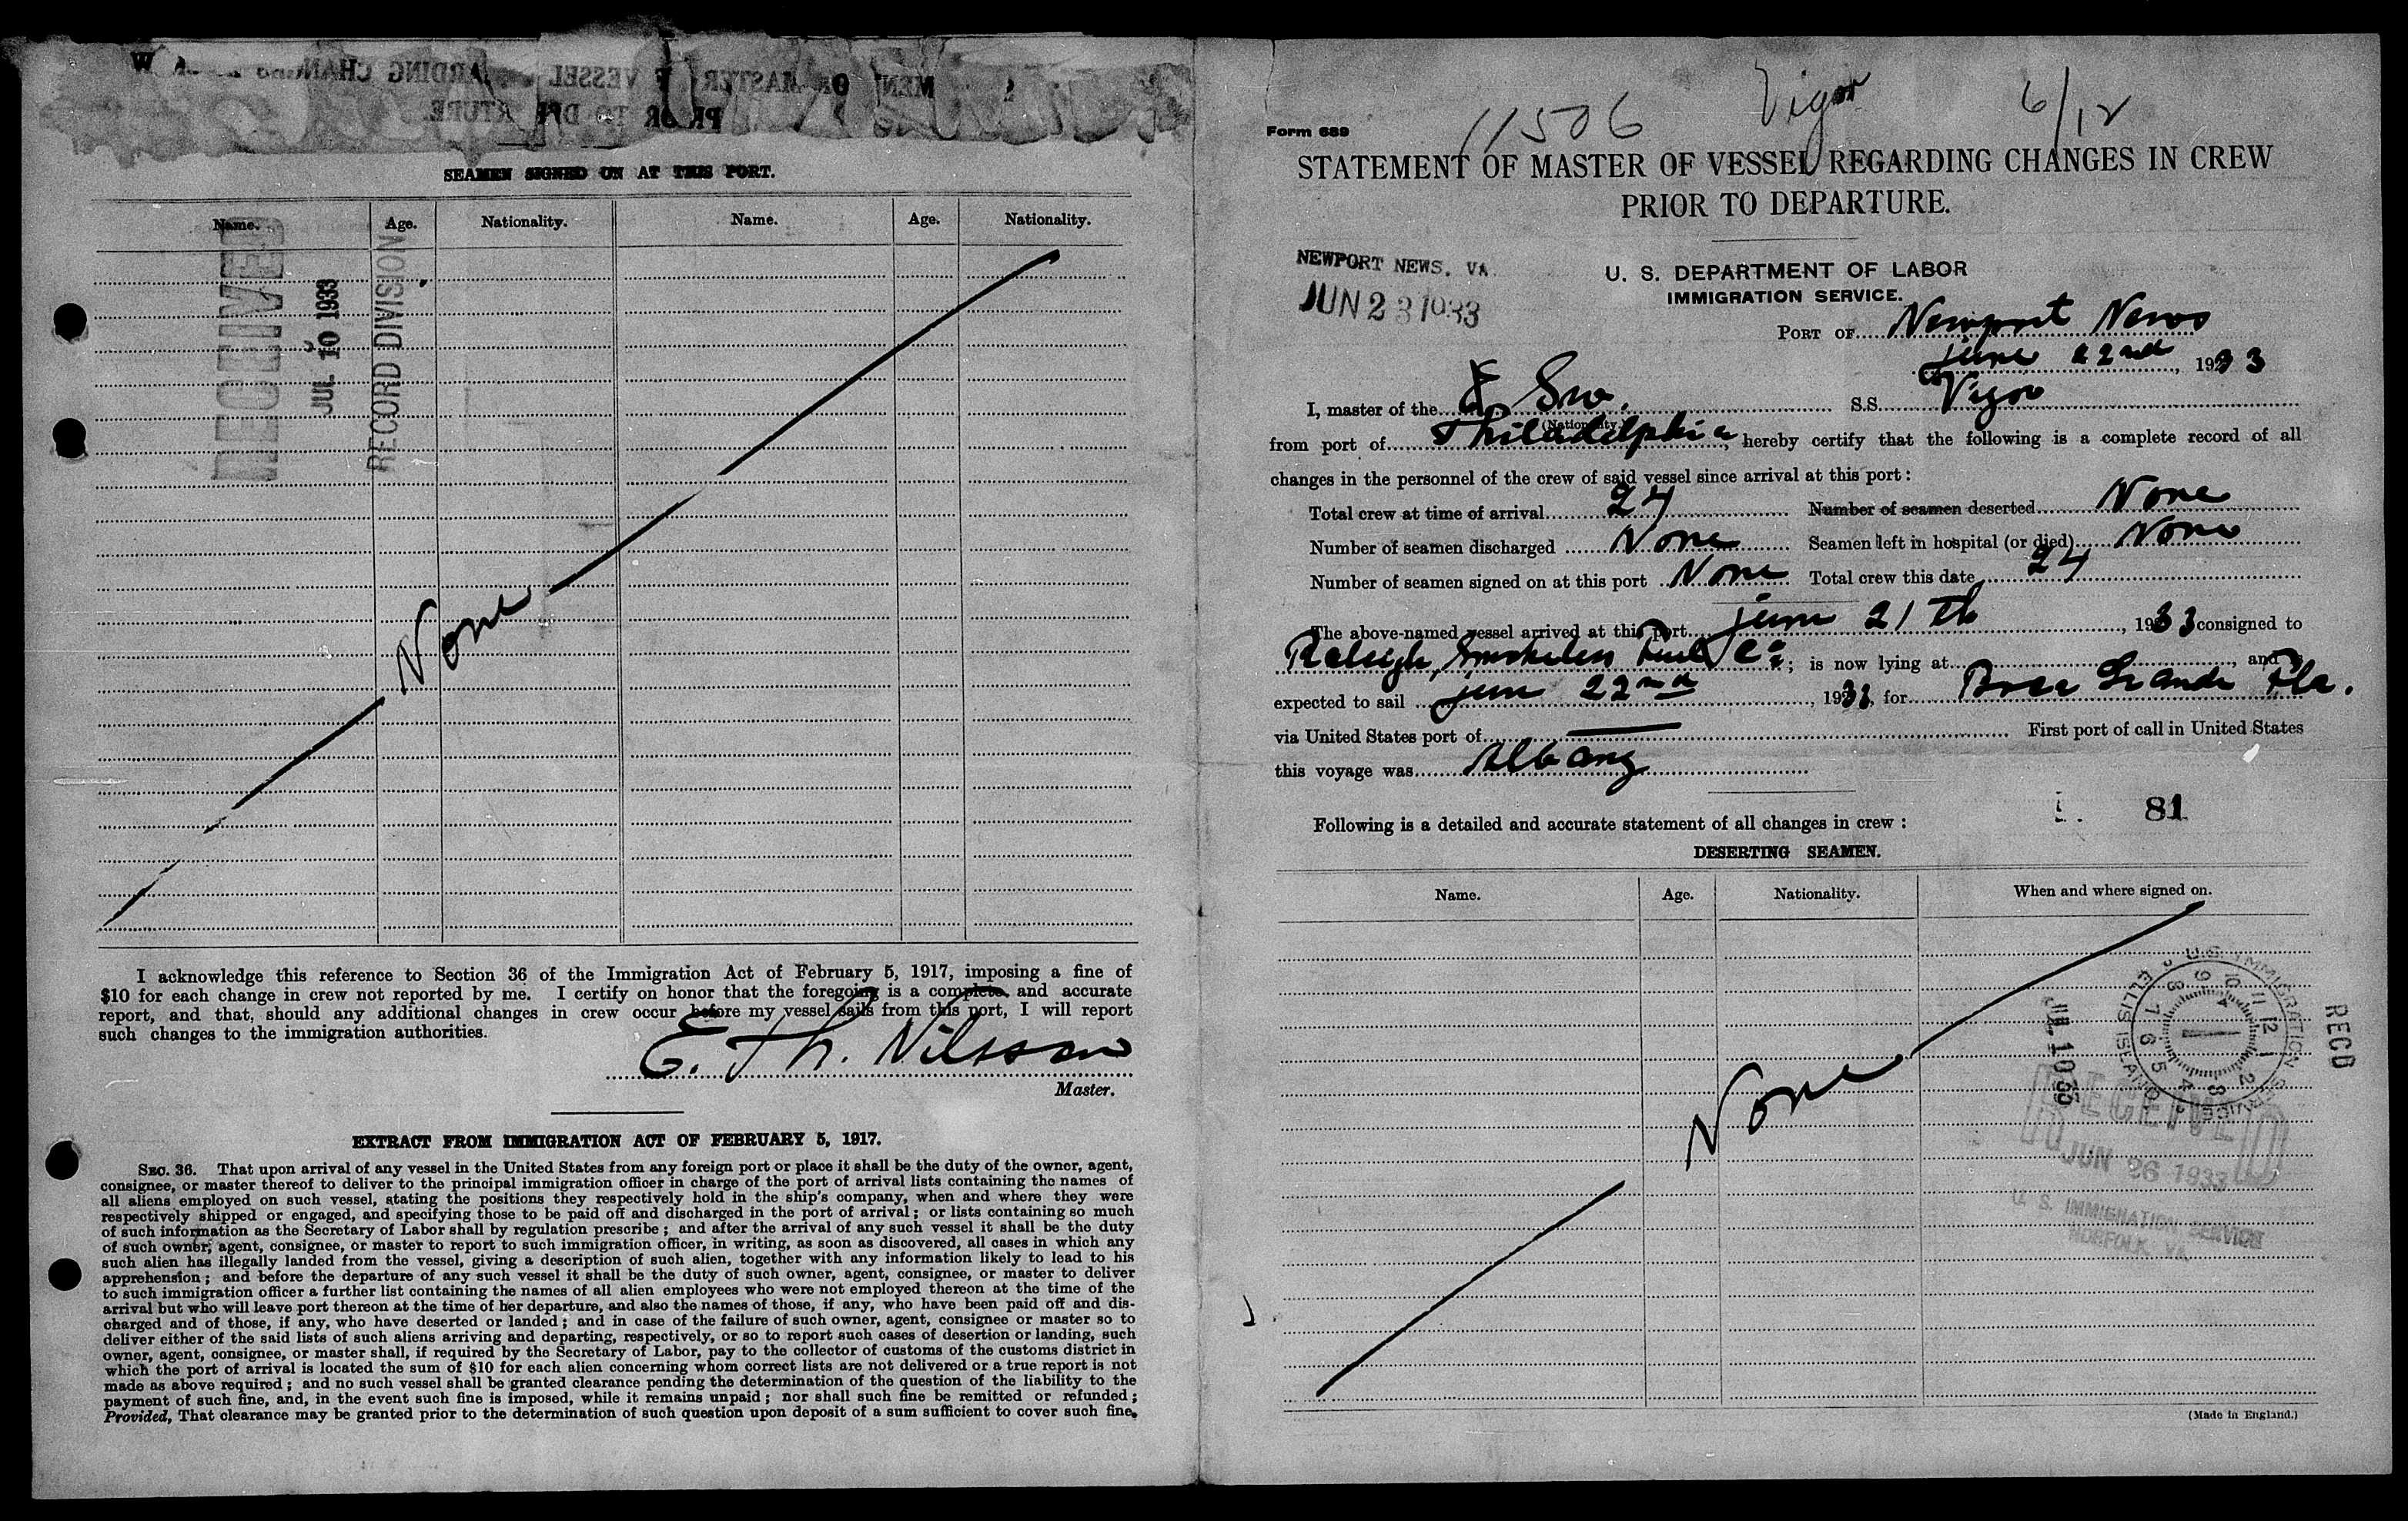 SEAMEN SIGNED ON AT THIS PORT.
Name. Age. Nationality. Name. Age. Nationality.
RECEIVED
JUL 10 1933
RECORD DIVISION
None
I acknowledge this reference to Section 36 of the Immigration Act of February 5, 1917, imposing a fine of
$10 for each change in crew not reported by me. I certify on honor that the foregoing is a complete and accurate
report, and that, should any additional changes in crew occur before my vessel sails from this port, I will report
such changes to the immigration authorities.
E. Th. Nilsson
Master.
EXTRACT FROM IMMIGRATION ACT OF FEBRUARY 5, 1917.
SEC. 36. That upon arrival of any vessel in the United States from any foreign port or place it shall be the duty of the owner, agent,
consignee, or master thereof to deliver to the principal immigration officer in charge of the port of arrival lists containing the names of
all aliens employed on such vessel, stating the positions they respectively hold in the ship's company, when and where they were
respectively shipped or engaged, and specifying those to be paid off and discharged in the port of arrival; or lists containing so much
of such information as the Secretary of Labor shall by regulation prescribe; and after the arrival of any such vessel it shall be the duty
of such owner, agent, consignee, or master to report to such immigration officer, in writing, as soon as discovered, all cases in which any
such alien has illegally landed from the vessel, giving a description of such alien, together with any information likely to lead to his
apprehension; and before the departure of any such vessel it shall be the duty of such owner, agent, consignee, or master to deliver
to such immigration officer a further list containing the names of all alien employees who were not employed thereon at the time of the
arrival but who will leave port thereon at the time of her departure, and also the names of those, if any, who have been paid off and dis-
charged and of those, if any, who have deserted or landed; and in case of the failure of such owner, agent, consignee or master so to
deliver either of the said lists of such aliens arriving and departing, respectively, or so to report such cases of desertion or landing, such
owner, agent, consignee, or master shall, if required by the Secretary of Labor, pay to the collector of customs of the customs district in
which the port of arrival is located the sum of $10 for each alien concerning whom correct lists are not delivered or a true report is not
made as above required; and no such vessel shall be granted clearance pending the determination of the question of the liability to the
payment of such fine, and, in the event such fine is imposed, while it remains unpaid; nor shall such fine be remitted or refunded;
Provided, That clearance may be granted prior to the determination of such question upon deposit of a sum sufficient to cover such fine.
11506 Vigor 6/12
Form 689
STATEMENT OF MASTER OF VESSEL REGARDING CHANGES IN CREW
PRIOR TO DEPARTURE.
NEWPORT NEWS, VA.
JUN 23 1933
U. S. DEPARTMENT OF LABOR
IMMIGRATION SERVICE.
PORT OF Newport News
June 22nd, 1933
I, master of the Sw. S.S. Vigor
(Nationality)
from port of Philadelphia, hereby certify that the following is a complete record of all
changes in the personnel of the crew of said vessel since arrival at this port:
Total crew at time of arrival 24 Number of seamen deserted None
Number of seamen discharged None Seamen left in hospital (or died) None
Number of seamen signed on at this port None Total crew this date 24
The above-named vessel arrived at this port June 21th, 1933 consigned to
Raleigh Smokeless Fuel Co; is now lying at , and
expected to sail June 22nd, 1933, for Boca Grande Fla.
via United States port of — First port of call in United States
this voyage was Albany
81
Following is a detailed and accurate statement of all changes in crew:
DESERTING SEAMEN.
Name. Age. Nationality. When and where signed on.
None
U.S. IMMIGRATION SERVICE ELLIS ISLAND
RECD
JUL 10
RECEIVED
JUN 26 1933
U. S. IMMIGRATION SERVICE
NORFOLK, VA.
(Made in England.)